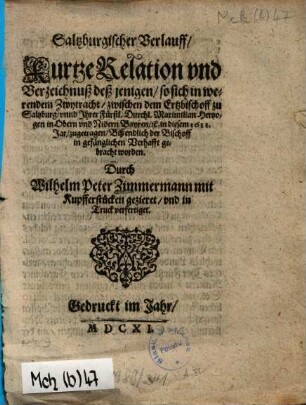 Mch (b) 47
Saltzburgischer Verlauff/
Kurtze Relation vnd
Verzeichnuß deß jenigen/ so sich in we-
rendem Zwytracht/ zwischen dem Ertzbischoff zu
Saltzburg/ vnnd Ihrer Fürstl. Durchl. Maximilian Hertzo-
gen in Obern vnd Nidern Bayren/ &c. in disem 1611.
Jar/ zugetragen/ Biß endlich der Bischoff
in gefänglichen Verhafft ge-
bracht worden.
Durch
Wilhelm Peter Zimmermann mit
Kupfferstücken gezieret/ vnd in
Truck verfertiget.
Gedruckt im Jahr/
MDCXI.
Mch (b) 47